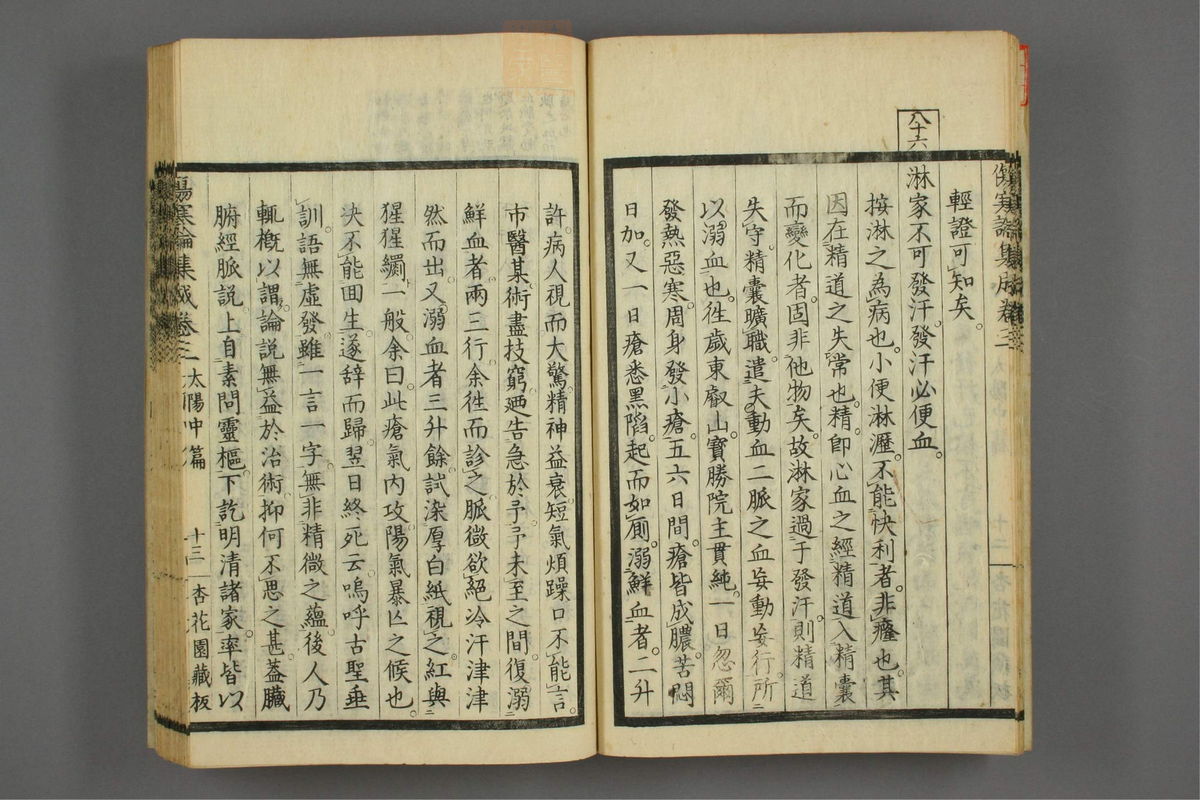 傷寒論集成卷三
輕證可知矣。
八十六
淋家不可發汗。發汗必便血。
按淋之為病也。小便淋瀝。不能快利者。非癃也。其
因在精道之失常也。精即心血之經精道入精囊
而變化者。固非他物矣。故淋家過于發汗。則精道
失守。精囊曠職。遣夫動血二脈之血妄動妄行。所
以溺血也。往歲東叡山寶勝院主貫純。一日忽爾
發熱惡寒。周身發小瘡。五六日間。瘡皆成膿。苦悶
日加。又一日瘡悉黑陷。起而如廁。溺鮮血者。二升
許。病人視而大驚。精神益衰。短氣煩躁。口不能言。
市醫某。術盡技窮。廼告急於予。予未至之間。復溺
鮮血者。兩三行。余往而診之。脈微欲絕。冷汗津津
然而出。又溺血者三升餘。試染厚白紙視之。紅與
猩猩纐一般。余曰。此瘡氣內攻。陽氣暴亾之候也。
決不能回生。遂辞而歸。翌日終死云。嗚呼古聖垂
訓。語無虛發。雖一言一字。無非精微之蘊。後人乃
輒概以謂。論說無益於治術。抑何不思之甚。蓋臟
腑經脈說。上自素問靈樞。下訖明清諸家。率皆以
傷寒論集成卷三
太陽中篇
十三
杏花園藏板